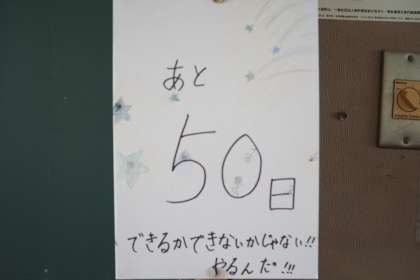 あと
50日
できるかできないかじゃない!!
やるんだ!!!